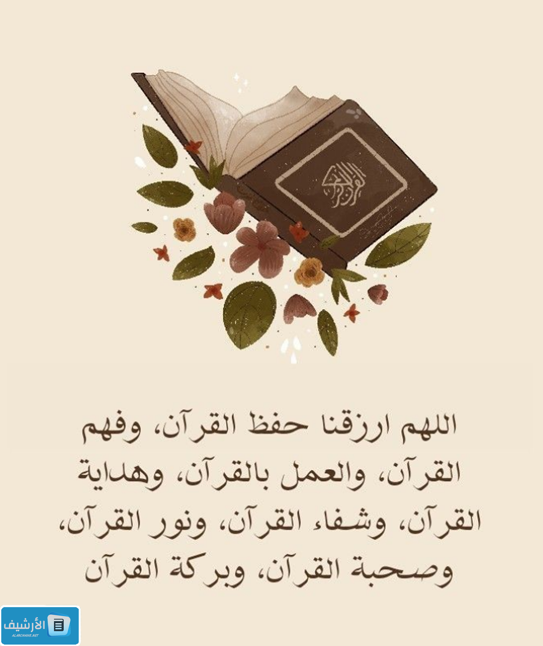 القرآن الكريم
اللهم ارزقنا حفظ القرآن، وفهم
القرآن، والعمل بالقرآن، وهداية
القرآن، وشفاء القرآن، ونور القرآن،
وصحبة القرآن، وبركة القرآن
الأرشيف